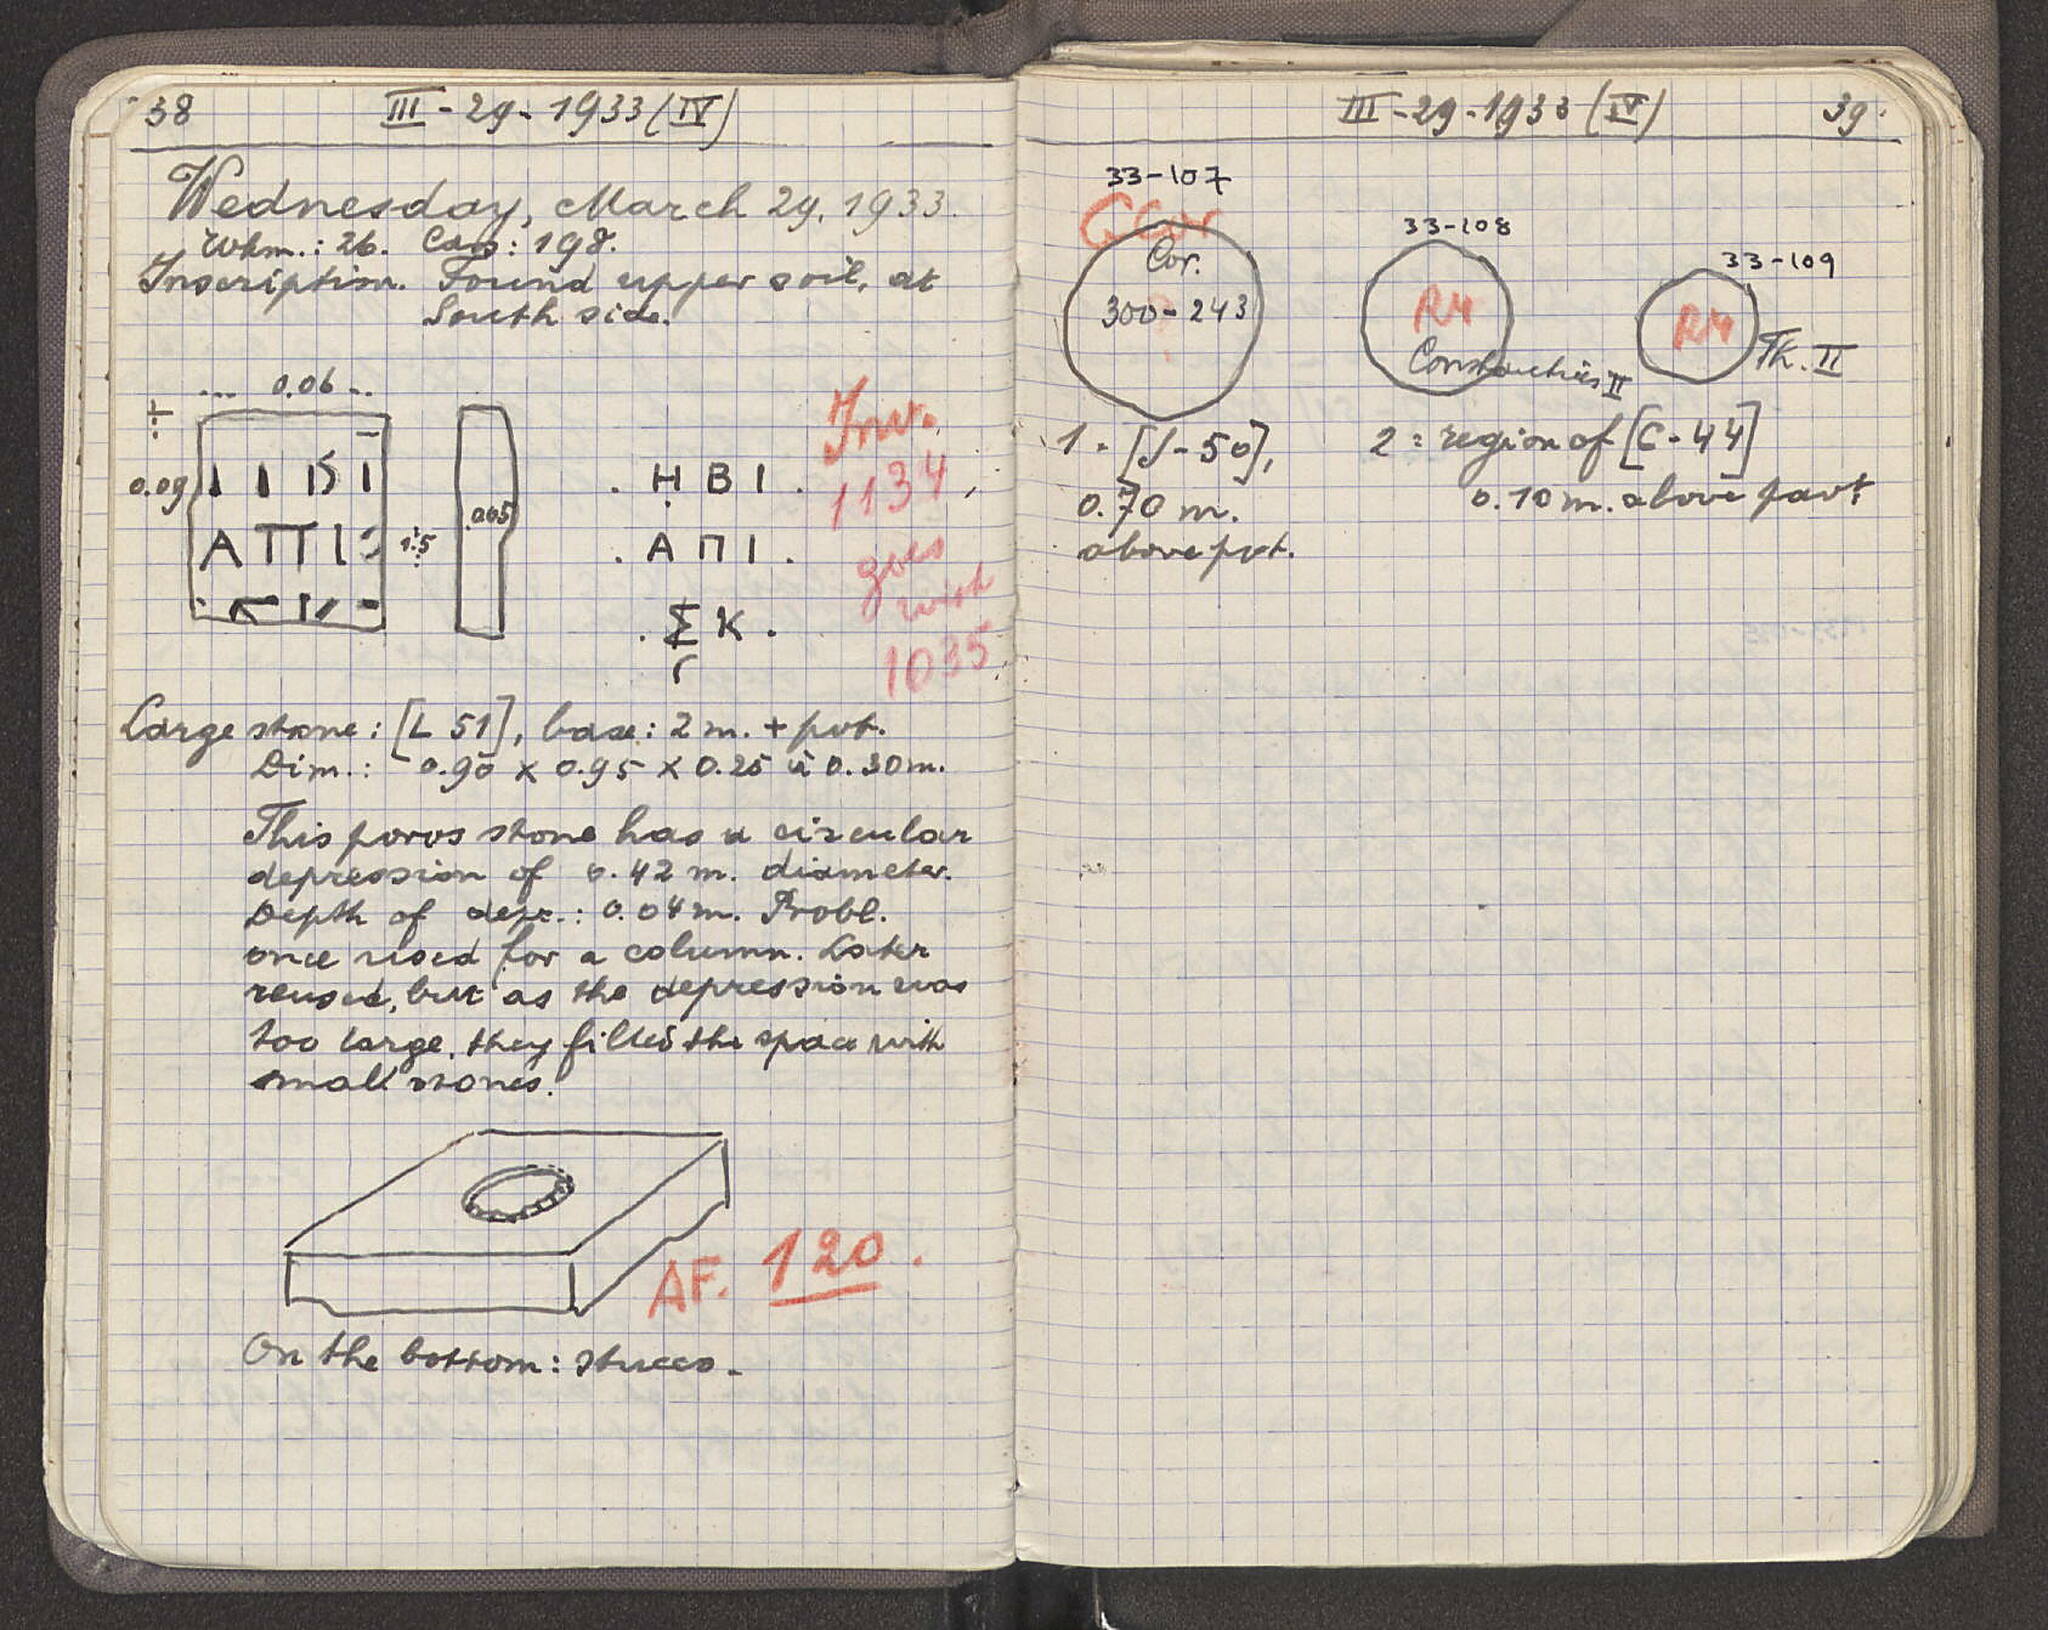 38 III - 29 - 1933 (IV)
Wednesday, March 29, 1933.
Wkm.: 26. Cars: 198.
Inscription. Found upper soil, at
South side.
0.06
0.09
0.05
1.5
Α Π Ι
. Η Β Ι .
. Α Π Ι .
. Σ Κ .
Inv.
1134
goes
with
1035
Large stone: [L 51], base: 2 m. + pvt.
Dim.: 0.90 x 0.95 x 0.25 à 0.30 m.
This poros stone has a circular
depression of 0.42 m. diameter.
Depth of depr.: 0.04 m. Probl.
once used for a column. Later
reused, but as the depression was
too large, they filled the space with
small stones.
AF. 120.
On the bottom: stucco.
III - 29 - 1933 (IV) 39.
33-107
Cor.
300 - 243
33-108
R4
Constantius II
33-109
R4
Th. II
1 = [J - 50],
0.70 m.
above pvt.
2 = region of [C - 44]
0.10 m. above pavt